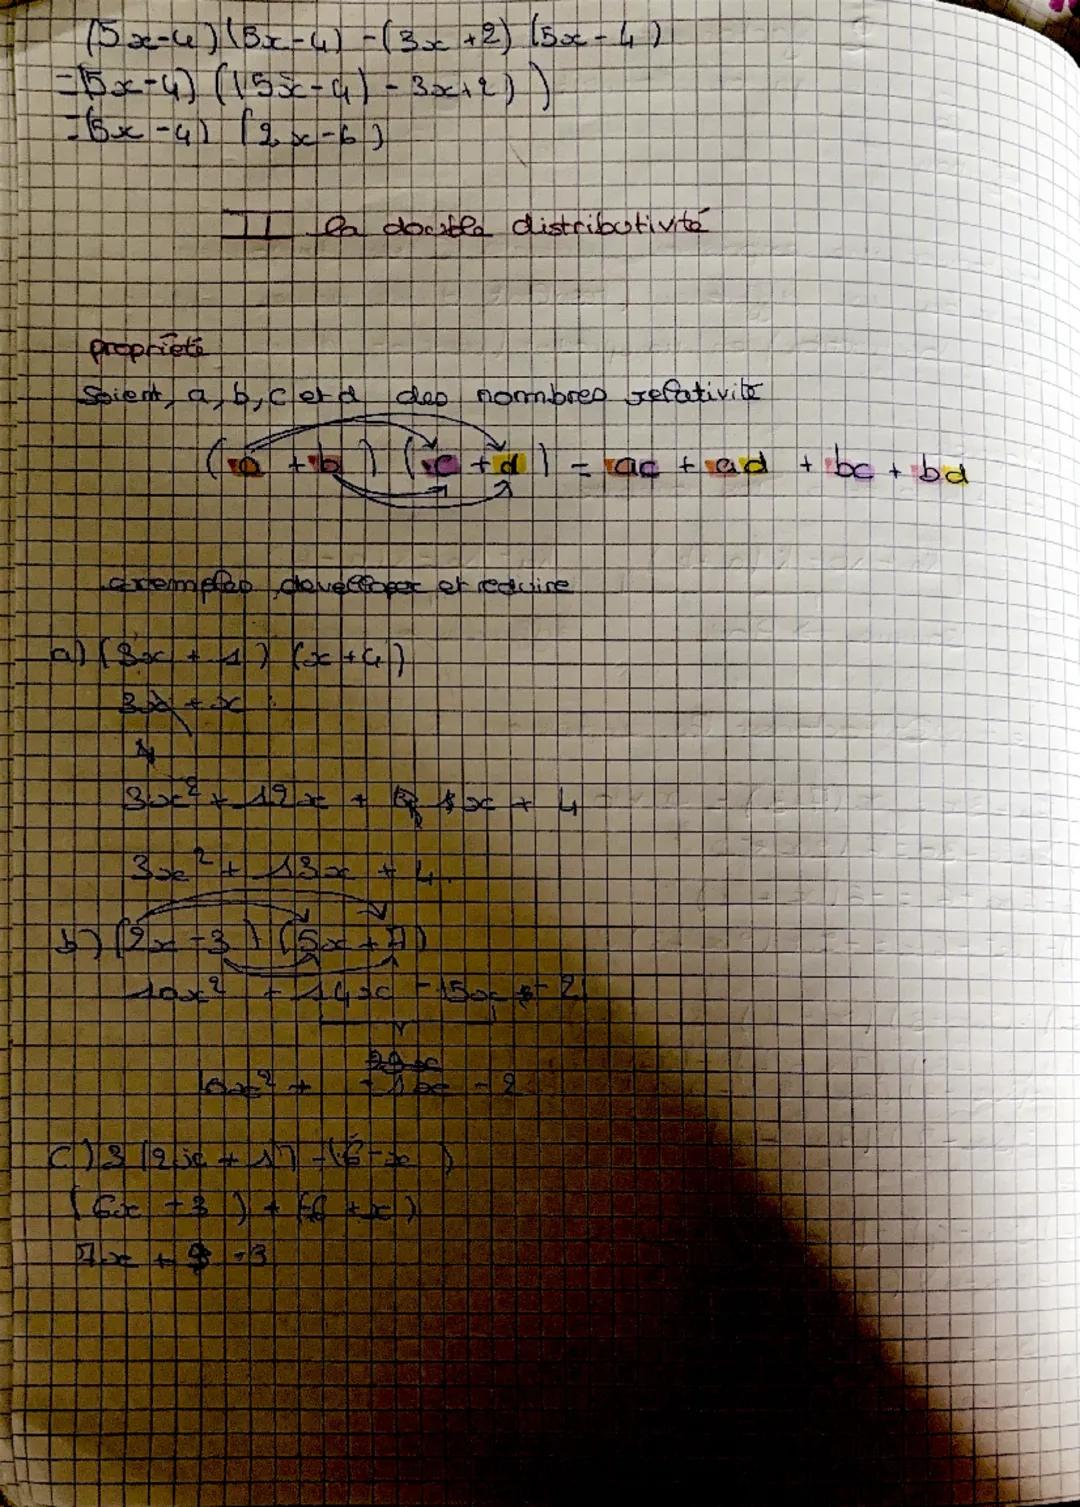 (5x-4)(5x-4)-(3x+2)(5x-4)
=(5x-4)((5x-4)-3x+2))
=(5x-4)(2x-6)
II la double distributivité
propriété
Soient, a, b, c et d des nombres relativité
(a + b) (c + d) = ac + ad + bc + bd
exemples developper et reduire
a) (3x + 1) (x+4)
3x + x
3x² + 12x + 1x + 4
3x² + 13x + 4.
b) (2x - 3) (5x + 7)
10x² + 14x - 15x - 21
10x² + - 1x - 2
c) 3 (2x + 1) - (6 - x)
(6x + 3) + (-6 + x)
7x + -3